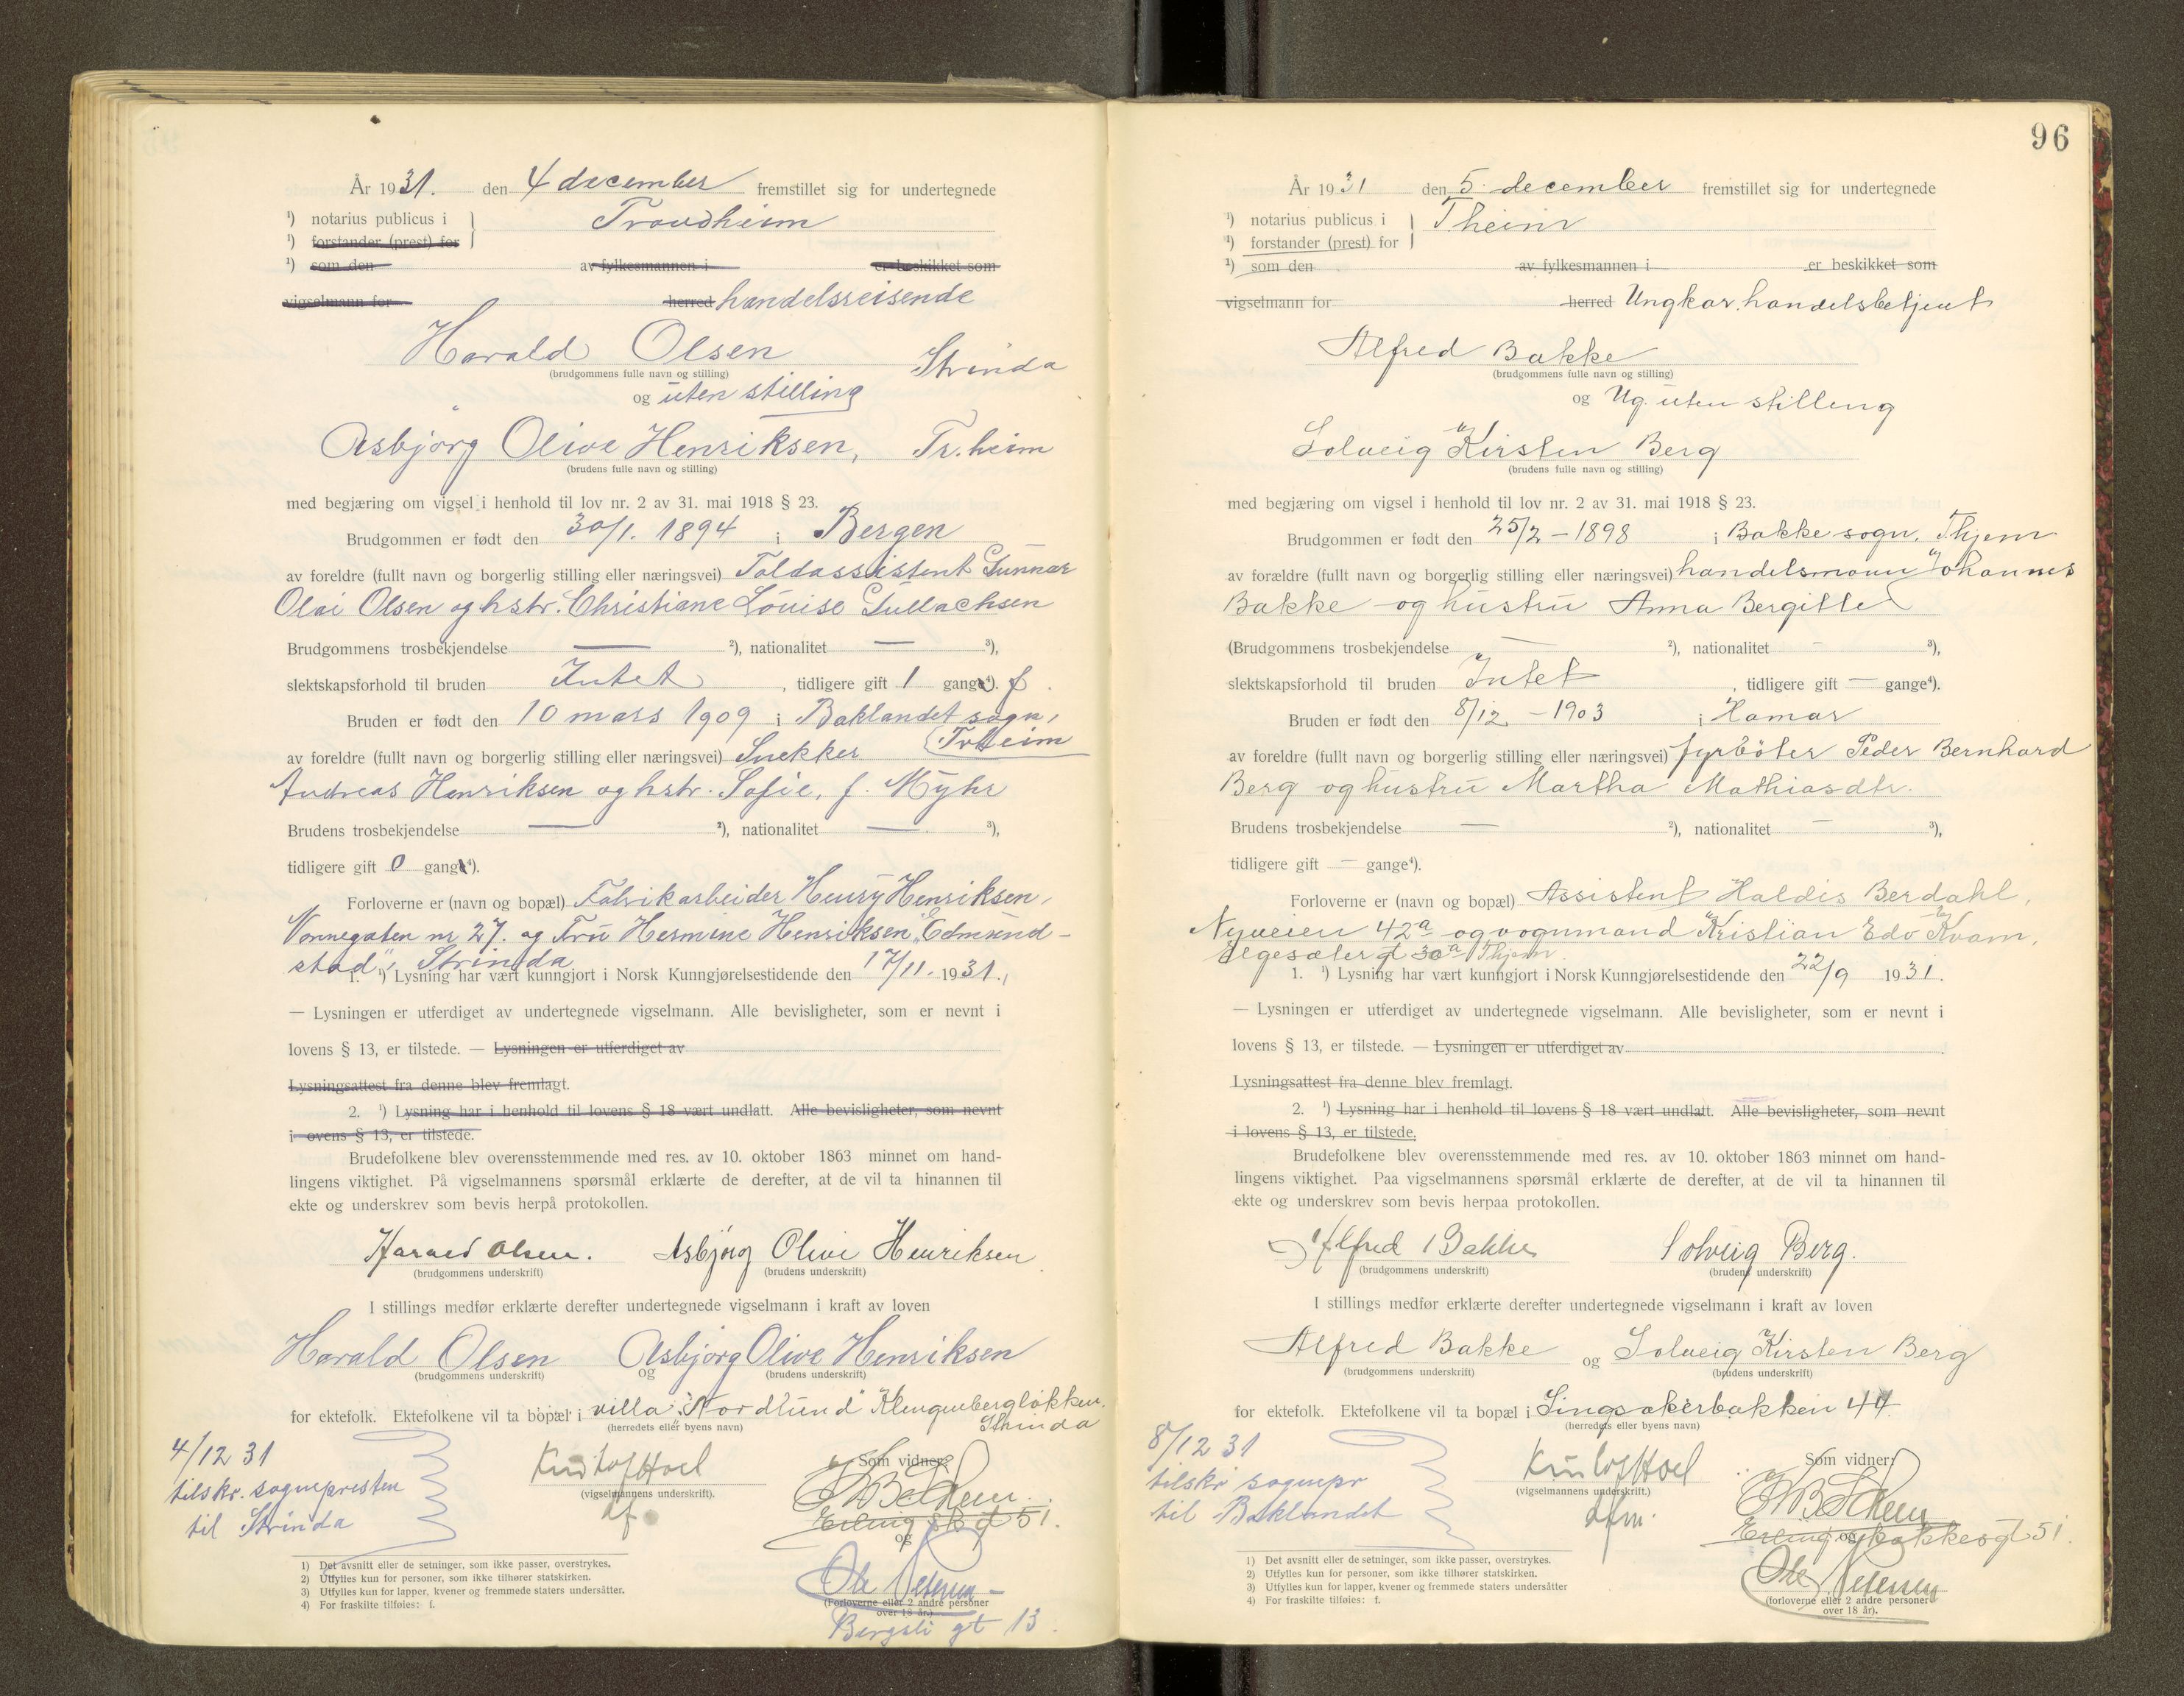 År 1931. den 4 december fremstillet sig for undertegnede
¹) notarius publicus i Trondheim
¹) forstander (prest) for
¹) som den av fylkesmannen i er beskikket som
vigselmann for herred handelsreisende
Harald Olsen Strinda
(brudgommens fulle navn og stilling)
og uten stilling
Asbjørg Olive Henriksen, Tr.heim
(brudens fulle navn og stilling)
med begjæring om vigsel i henhold til lov nr. 2 av 31. mai 1918 § 23.
Brudgommen er født den 30/1. 1894 i Bergen
av foreldre (fullt navn og borgerlig stilling eller næringsvei) Toldassistent Gunnar
Olai Olsen og hstr. Christiane Louise Gullachsen
Brudgommens trosbekjendelse — ²), nationalitet — ³),
slektskapsforhold til bruden Intet, tidligere gift 1 gang⁴). f.
Bruden er født den 10 mars 1909 i Baklandet sogn,
Trheim
av foreldre (fullt navn og borgerlig stilling eller næringsvei) Snekker
Andreas Henriksen og hstr. Sofie, f. Myhr
Brudens trosbekjendelse — ²), nationalitet — ³),
tidligere gift 0 gang⁴).
Forloverne er (navn og bopæl) Fabrikarbeider Henry Henriksen,
Nonnegaten nr 27. og Fru Hermine Henriksen, "Edmund-
stad", Strinda
1. ¹) Lysning har vært kunngjort i Norsk Kunngjørelsestidende den 17/11. 1931.,
— Lysningen er utferdiget av undertegnede vigselmann. Alle bevisligheter, som er nevnt i
lovens § 13, er tilstede. — Lysningen er utferdiget av
Lysningsattest fra denne blev fremlagt.
2. ¹) Lysning har i henhold til lovens § 18 vært undlatt. Alle bevisligheter, som nevnt
i ovens § 13, er tilstede.
Brudefolkene blev overensstemmende med res. av 10. oktober 1863 minnet om hand-
lingens viktighet. På vigselmannens spørsmål erklærte de derefter, at de vil ta hinannen til
ekte og underskrev som bevis herpå protokollen.
Harald Olsen. Asbjørg Olive Henriksen
(brudgommens underskrift) (brudens underskrift)
I stillings medfør erklærte derefter undertegnede vigselmann i kraft av loven
Harald Olsen og Asbjørg Olive Henriksen
(brudgommens underskrift) (brudens underskrift)
for ektefolk. Ektefolkene vil ta bopæl i villa "Nordlund" Klingenbergløkken.
Strinda
(herredets eller byens navn)
4/12 31
tilskr. sognepresten
til Strinda
(vigselmannens underskrift).
Som vidner:
Erling 51.
og
Ole Petersen
(Forloverne eller 2 andre personer
over 18 år.)
Bergsli gt 13.
1) Det avsnitt eller de setninger, som ikke passer, overstrykes.
2) Utfylles kun for personer, som ikke tilhører statskirken.
3) Utfylles kun for lapper, kvener og fremmede staters undersåtter.
4) For fraskilte tilføies: f.
96
År 1931 den 5. december fremstillet sig for undertegnede
¹) notarius publicus i T.heim
¹) forstander (prest) for
¹) som den av fylkesmannen i er beskikket som
vigselmann for herred Ungkar, handelsbetjent
Alfred Bakke
(brudgommens fulle navn og stilling)
og Ug. uten stilling
Solveig Kirsten Berg
(brudens fulle navn og stilling)
med begjæring om vigsel i henhold til lov nr. 2 av 31. mai 1918 § 23.
Brudgommen er født den 25/2 – 1898 i Bakke sogn, Thjem
av forældre (fullt navn og borgerlig stilling eller næringsvei) handelsmann Johannes
Bakke og hustru Anna Bergitte
(Brudgommens trosbekjendelse — ²), nationalitet — ³),
slektskapsforhold til bruden Intet, tidligere gift — gange⁴).
Bruden er født den 8/12 – 1903 i Hamar
av foreldre (fullt navn og borgerlig stilling eller næringsvei) fyrbøter Peder Bernhard
Berg og hustru Martha Mathiasdtr.
Brudens trosbekjendelse — ²), nationalitet — ³),
tidligere gift — gange⁴).
Forloverne er (navn og bopæl) Assistent Haldis Berdahl,
Nyveien 42a og vognmand Kristian Edv Kvam,
Elgesætergt 30a Thjem.
1. ¹) Lysning har vært kunngjort i Norsk Kunngjørelsestidende den 22/9 1931.
— Lysningen er utferdiget av undertegnede vigselmann. Alle bevisligheter, som er nevnt i
lovens § 13, er tilstede. — Lysningen er utferdiget av
Lysningsattest fra denne blev fremlagt.
2. ¹) Lysning har i henhold til lovens § 18 vært undlatt. Alle bevisligheter, som nevnt
i lovens § 13, er tilstede.
Brudefolkene blev overensstemmende med res. av 10. oktober 1863 minnet om hand-
lingens viktighet. Paa vigselmannens spørsmål erklærte de derefter, at de vil ta hinannen til
ekte og underskrev som bevis herpaa protokollen.
Alfred Bakke Solveig Berg.
(brudgommens underskrift) (brudens underskrift)
I stillings medfør erklærte derefter undertegnede vigselmann i kraft av loven
Alfred Bakke og Solveig Kirsten Berg
(brudgommens underskrift) (brudens underskrift)
for ektefolk. Ektefolkene vil ta bopæl i Singsakerbakken 44.
(herredets eller byens navn)
8/12 31
tilskr sognepr
til Baklandet
(vigselmannens underskrift.)
dfm.
Som vidner:
Erling Skakkesgt 51.
og
Ole Petersen
(forloverne eller 2 andre personer
over 18 år).
1) Det avsnitt eller de setninger, som ikke passer, overstrykes.
2) Utfylles kun for personer, som ikke tilhører statskirken.
3) Utfylles kun for lapper, kvener og fremmede staters undersåtter
4) For fraskilte tilføies: f.